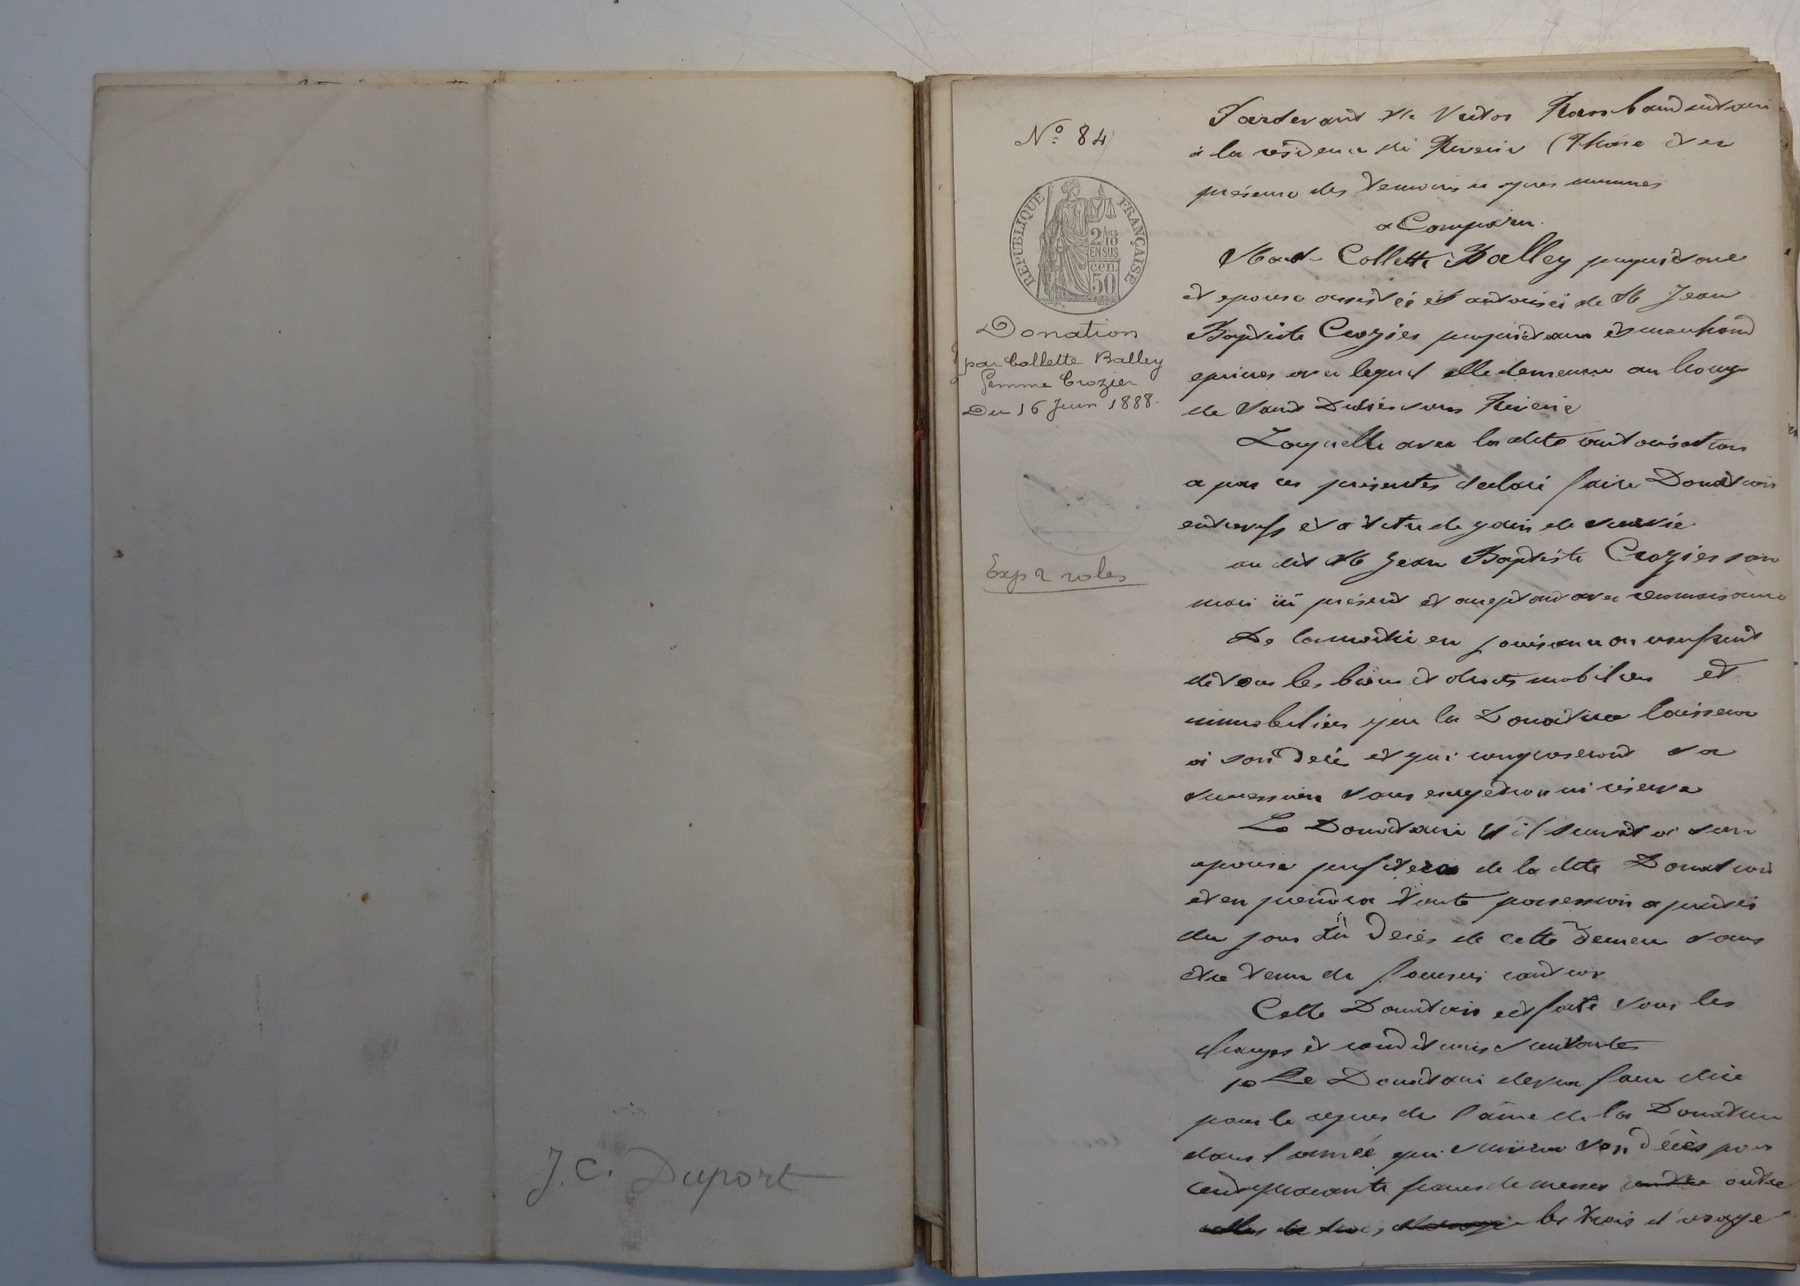 J. C. Duport
Nº 84
RÉPUBLIQUE FRANÇAISE
2/10
EN SUS
cen.
50
Donation
par Collette Balley
femme Crozier
Du 16 Juin 1888.
Exp 2 roles
Pardevant Me Victor Rambaud notaire
à la résidence de Riverie (Rhône et en
présence des temoins ci après nommés
a Comparu
Made Collette Balley propriétaire
et épouse assistée et autorisée de M Jean
Baptiste Crozier propriétaire et marchand
epicier avec lequel elle demeure au bourg
de Saint Didier sous Riverie
Laquelle avec la dite autorisation
a par ces présentes declaré faire Donation
entrevifs et a titre de gain de survie
au dit M Jean Baptiste Crozier son
mari ici présent et acceptant avec reconnaissance
De la moitié en jouissance ou usufruit
de tous les biens et droits mobiliers et
immobiliers que la Donatrice laissera
à son décè et qui composeront sa
succession sans exception ni réserve
Le Donataire s'il survit à son
epouse profitera de la dite Donation
et en prendra toute possession a partir
du jour du décès de cette derniere sans
etre tenu de fournir caution
Cette Donation est faite sous les
charges et conditions suivantes
1o Le Donataire devra faire dire
pour le repos de l'âme de la Donatrice
dans l'année qui suivra son décès pour
cent quarante francs de messes outre
les trois d'usage